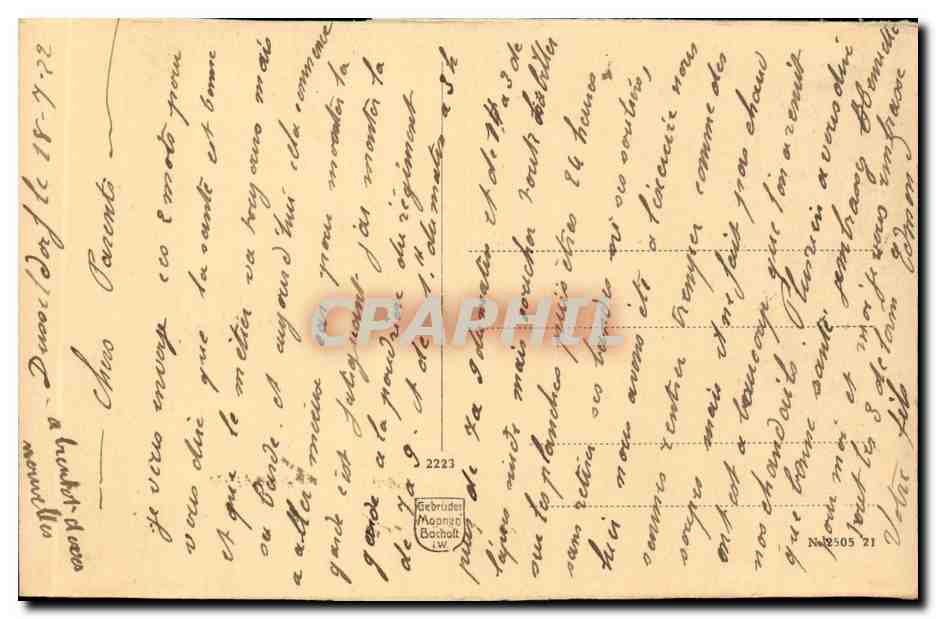 Dusseldorf le 18-7-22
Chers Parents
je vous envoye ces 2 mots pour
vous dire que la santé et bonne
et que le métier va toujours mais
au Garde. et aujourd'hui éla commence
a aller mieux pour monter la
garde c'est fatiguant j'ai monter la
garde a la poudrière du régiment
de 7 a 9 et de 1 du matin a 3 h
puis de 7 a 9 du matin et de 1 a 3 de
l'après midi mais coucher tout habiller
sur les planches puis êtres 24 heures
sans retirer ses bandes ni ses souliers,
hier nous avons été a l'exercice nous
sommes rentrer tremper comme des
soupes mais il ne fait pas chaud
ont est a beaucoup que l'on avenit
nos chandails Plus rien a vous dire
que bonne santé
pour moi et
tout les 3 de loin je vous embrasse
Votre fils
a bientot deces
nouvelles
2223
Gebrüder
Mapner
Bocholt
i.W.
No 2505 21
CPAPHIL